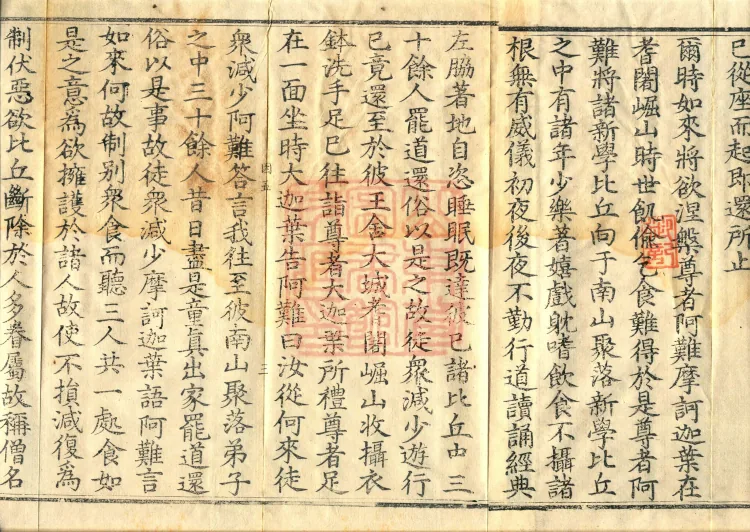 已從座而起即還所止
爾時如來將欲涅槃尊者阿難摩訶迦葉在
耆闍崛山時世飢儉乞食難得於是尊者阿
難將諸新學比丘向于南山聚落新學比丘
之中有諸年少樂著嬉戲躭嗜飲食不攝諸
根無有威儀初夜後夜不勤行道讀誦經典
左脇著地自恣睡眠既達彼已諸比丘中三
十餘人罷道還俗以是之故徒衆減少遊行
已竟還至於彼王舍大城耆闍崛山收攝衣
鉢洗手足已往詣尊者大迦葉所禮尊者足
在一面坐時大迦葉告阿難曰汝從何來徒
三
衆減少阿難答言我往至彼南山聚落弟子
之中三十餘人昔日盡是童真出家罷道還
俗以是事故徒衆減少摩訶迦葉語阿難言
如來何故制別衆食而聽三人共一處食如
是之意為欲擁護於諸人故使不損減復為
制伏惡欲比丘斷除於人多眷屬故稱僧名